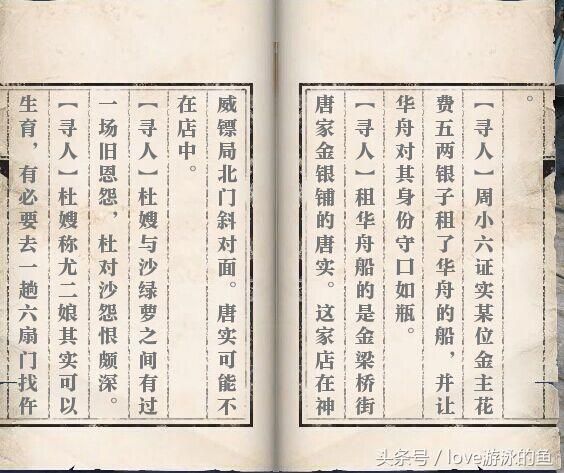 。
【寻人】周小六证实某位金主花
费五两银子租了华舟的船，并让
华舟对其身份守口如瓶。
【寻人】租华舟船的是金梁桥街
唐家金银铺的唐实。这家店在神
威镖局北门斜对面。唐实可能不
在店中。
【寻人】杜嫂与沙绿萝之间有过
一场旧恩怨，杜对沙怨恨颇深。
【寻人】杜嫂称尤二娘其实可以
生育，有必要去一趟六扇门找仵
头条号／love游泳的鱼